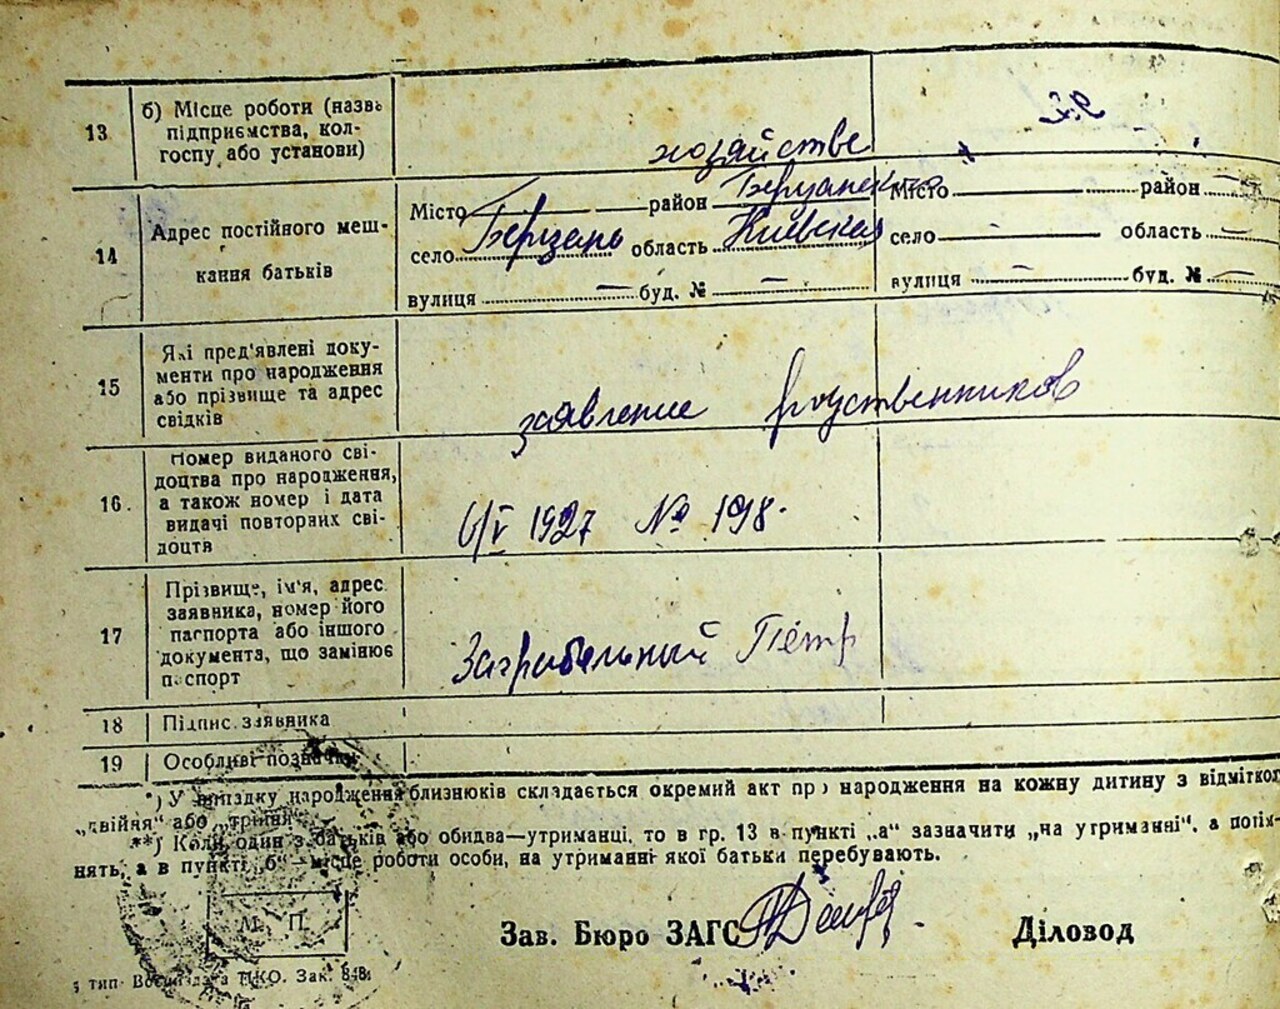 13 б) Місце роботи (назва
підприємства, кол-
госпу або установи)
хозяйстве
14 Адрес постійного меш-
кання батьків
Місто — район Березанск
село Березань область Киевская
вулиця — буд. № —
Місто — район —
село — область —
вулиця — буд. № —
15 Які пред'явлені доку-
менти про народження
або прізвище та адрес
свідків
заявление родственников
16. Номер виданого сві-
доцтва про народження,
а також номер і дата
видачі повторних сві-
доцтв
6/V 1927 № 198.
17 Прізвище, ім'я, адрес
заявника, номер його
паспорта або іншого
документа, що замінює
паспорт
Загребельный Пётр
18 Підпис заявника
19 Особливі позначки
*) У випадку народження близнюків складається окремий акт про народження на кожну дитину з відміткою
„двійня“ або „трійня“.
**) Коли один з батьків або обидва—утриманці, то в гр. 13 в пункті „а“ зазначити „на утриманні“, а потім-
нять, а в пункті „б“—місце роботи особи, на утриманні якої батьки перебувають.
Зав. Бюро ЗАГС
Діловод
М. П.
тип. ПКО. Зак. 848